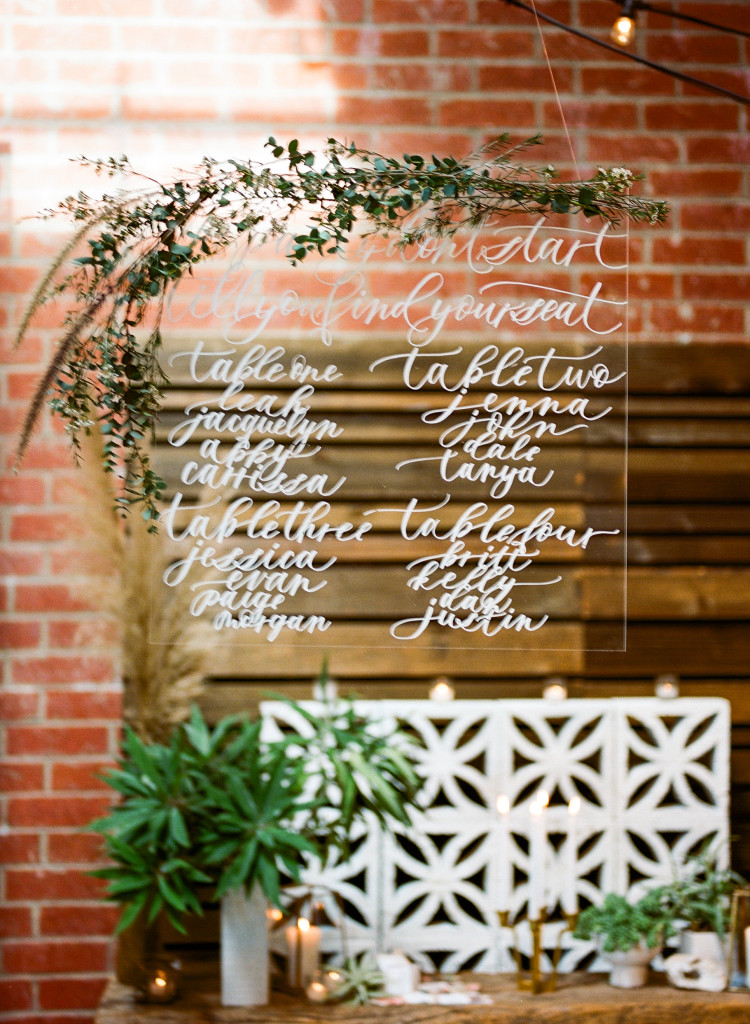 don't start
till you find your seat
table one
leah
jacquelyn
abby
carrissa
table two
jenna
john
dale
tanya
table three
jessica
evan
paige
morgan
table four
britt
kelly
justin